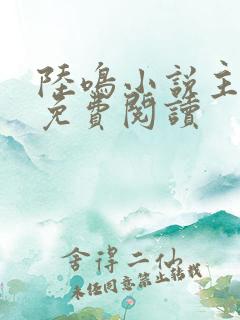 陸鳴小說主
免費閱讀
舍得二仙
未经同意禁止转载